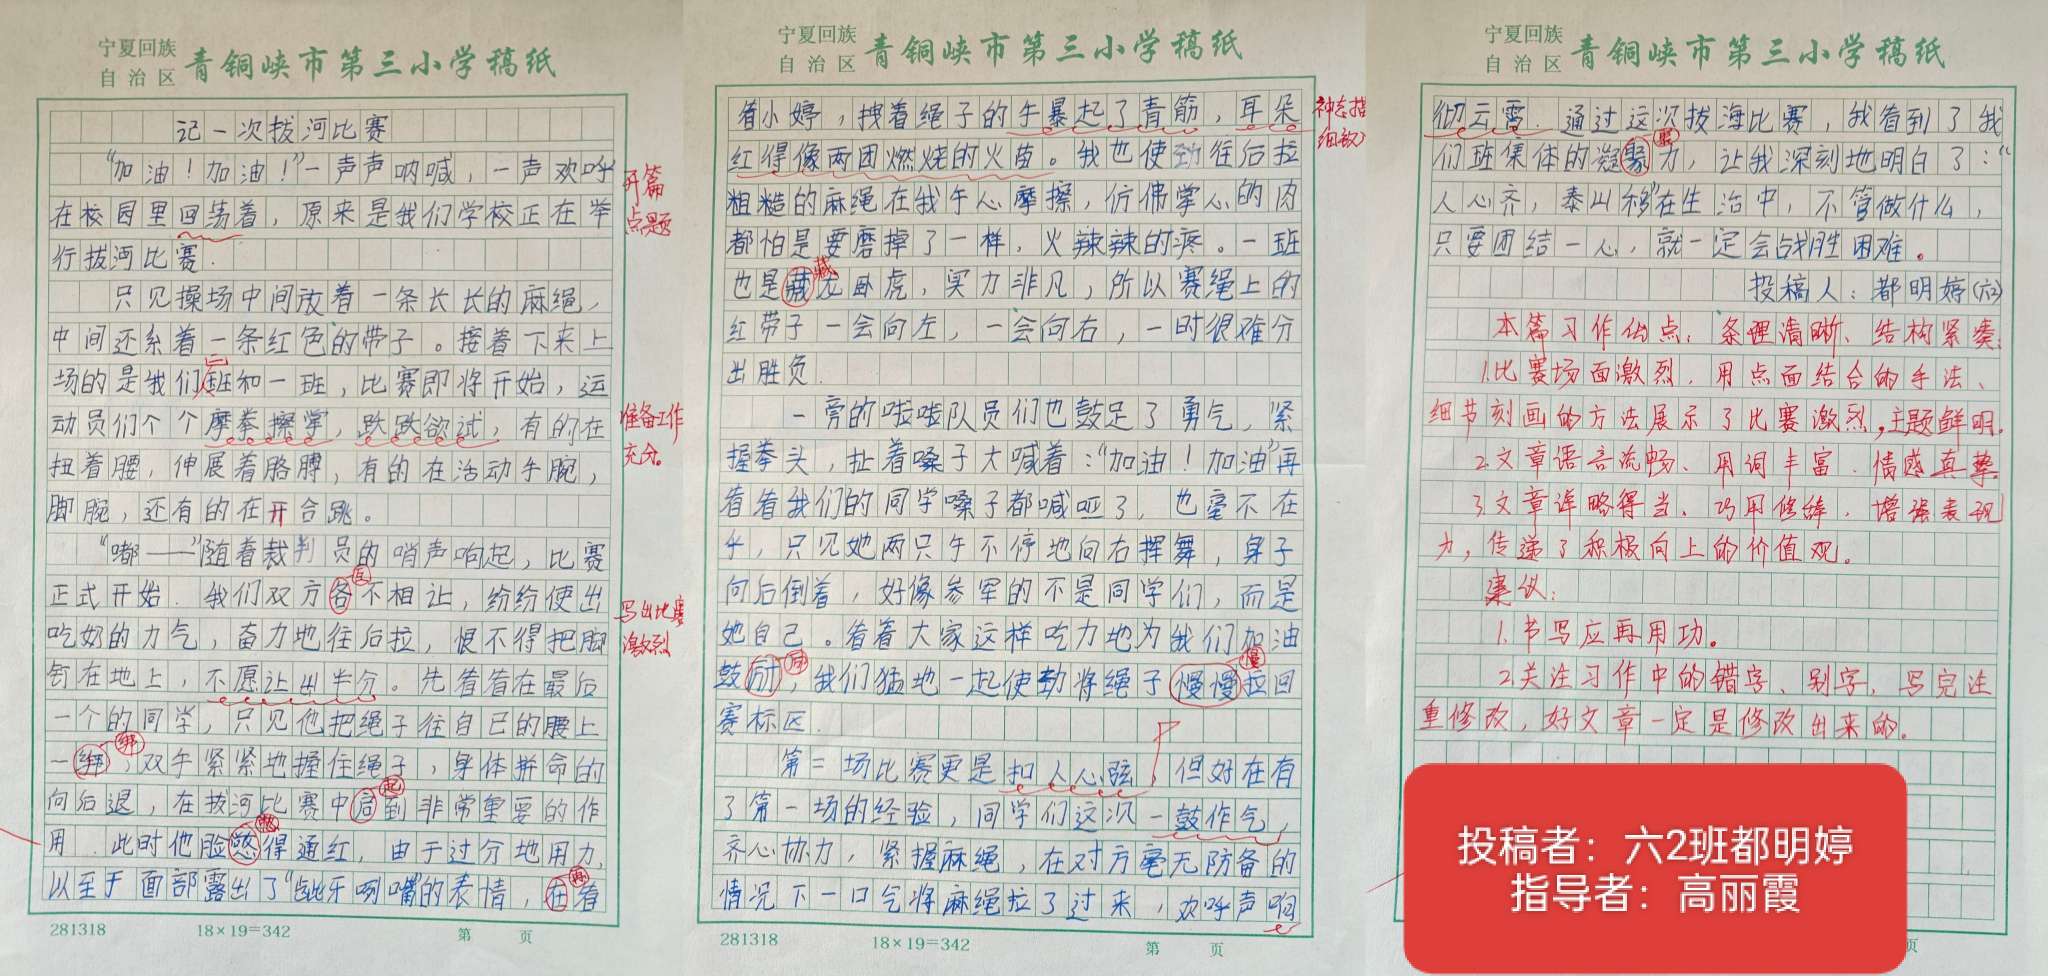 宁夏回族
自治区 青铜峡市第三小学稿纸
记一次拔河比赛
“加油！加油！”一声声呐喊，一声欢呼
在校园里回荡着，原来是我们学校正在举
行拔河比赛.
只见操场中间放着一条长长的麻绳，
中间还系着一条红色的带子。接着下来上
场的是我们二班和一班，比赛即将开始，运
动员们个个摩拳擦掌，跃跃欲试，有的在
扭着腰，伸展着胳膊，有的在活动手腕，
脚腕，还有的在开合跳。
“嘟——”随着裁判员的哨声响起，比赛
正式开始.我们双方各不相让，纷纷使出
吃奶的力气，奋力地往后拉，恨不得把脚
钉在地上，不愿让出半分。先看看在最后
一个的同学，只见他把绳子往自已的腰上
一绑，双手紧紧地握住绳子，身体拼命的
向后退，在拔河比赛中启到非常重要的作
用.此时他脸憋得通红，由于过分地用力，
以至于面部露出了“龇牙咧嘴”的表情，在看
开篇
点题
准备工作
充分。
写出比赛
激烈
互
绑
起
憋
再
281318 18×19=342 第 页
宁夏回族
自治区 青铜峡市第三小学稿纸
看小婷，拽着绳子的手暴起了青筋，耳朵
红得像两团燃烧的火苗。我也使劲往后拉
粗糙的麻绳在我手心摩擦，仿佛掌心的肉
都怕是要磨掉了一样，火辣辣的疼。一班
也是藏龙卧虎，实力非凡，所以赛绳上的
红带子一会向左，一会向右，一时很难分
出胜负.
一旁的啦啦队员们也鼓足了勇气，紧
握拳头，扯着嗓子大喊着：“加油！加油”再
看看我们的同学嗓子都喊哑了，也毫不在
乎，只见她两只手不停地向右挥舞，身子
向后倒着，好像参军的不是同学们，而是
她自己。看着大家这样吃力地为我们加油
鼓励，我们猛地一起使劲将绳子慢慢拉回
赛标区.
第二场比赛更是扣人心弦，但好在有
了第一场的经验，同学们这次一鼓作气，
齐心协力，紧握麻绳，在对方毫无防备的
情况下一口气将麻绳拉了过来，欢呼声响
神态描
细致
藏
励
慢
281318 18×19=342 第 页
宁夏回族
自治区 青铜峡市第三小学稿纸
彻云霄.通过这次拔海比赛，我看到了我
们班集体的凝聚力，让我深刻地明白了：“
人心齐，泰山移”在生治中，不管做什么，
只要团结一心，就一定会战胜困难。
投稿人：都明婷（六2）
聚
本篇习作优点：条理清晰、结构紧凑.
1.比赛场面激烈，用点面结合的手法、
细节刻画的方法展示了比赛激烈，主题鲜明.
2.文章语言流畅、用词丰富.情感真挚.
3.文章详略得当、巧用修辞，增强表现
力，传递了积极向上的价值观。
建议：
1.书写应再用功。
2.关注习作中的错字、别字，写完注
重修改，好文章一定是修改出来的。
投稿者：六2班都明婷
指导者：高丽霞
页